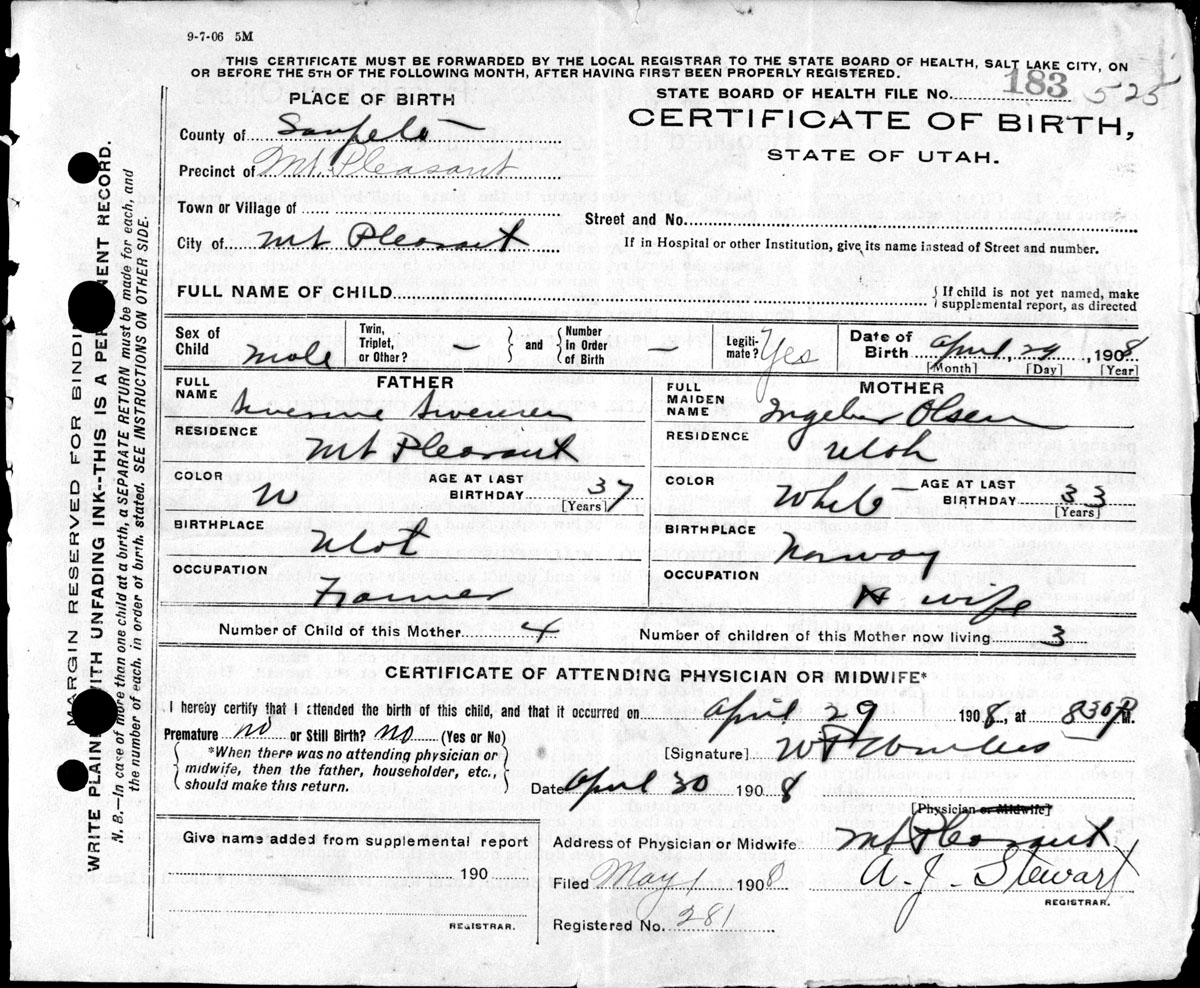 9-7-06 5M
THIS CERTIFICATE MUST BE FORWARDED BY THE LOCAL REGISTRAR TO THE STATE BOARD OF HEALTH, SALT LAKE CITY, ON
OR BEFORE THE 5TH OF THE FOLLOWING MONTH, AFTER HAVING FIRST BEEN PROPERLY REGISTERED.
STATE BOARD OF HEALTH FILE NO. 183 525
CERTIFICATE OF BIRTH,
STATE OF UTAH.
PLACE OF BIRTH
County of Sanpete
Precinct of Mt. Pleasant
Town or Village of
Street and No.
City of Mt Pleasant
If in Hospital or other Institution, give its name instead of Street and number.
FULL NAME OF CHILD
{ If child is not yet named, make
supplemental report, as directed
Sex of Child Male
Twin, Triplet, or Other? – } and { Number in Order of Birth –
Legitimate? Yes
Date of Birth April, 29, 1908
[Month] [Day] [Year]
FATHER
FULL NAME
RESIDENCE Mt Pleasant
COLOR W
AGE AT LAST BIRTHDAY 37
[Years]
BIRTHPLACE Utah
OCCUPATION Farmer
MOTHER
FULL MAIDEN NAME Olsen
RESIDENCE Utah
COLOR White
AGE AT LAST BIRTHDAY 33
[Years]
BIRTHPLACE Norway
OCCUPATION H wife
Number of Child of this Mother 4
Number of children of this Mother now living 3
CERTIFICATE OF ATTENDING PHYSICIAN OR MIDWIFE*
I hereby certify that I attended the birth of this child, and that it occurred on April 29 1908, at 830 P M.
Premature no or Still Birth? no (Yes or No)
{ *When there was no attending physician or
midwife, then the father, householder, etc.,
should make this return. }
[Signature]
Date April 30 1908
[Physician or Midwife]
Address of Physician or Midwife Mt Pleasant
Filed May 1 1908 A. J. Stewart
REGISTRAR.
Registered No. 281
Give name added from supplemental report
190
REGISTRAR.
MARGIN RESERVED FOR BINDING
WRITE PLAINLY WITH UNFADING INK--THIS IS A PERMANENT RECORD.
N. B.—In case of more than one child at a birth, a SEPARATE RETURN must be made for each, and
the number of each, in order of birth, stated. SEE INSTRUCTIONS ON OTHER SIDE.